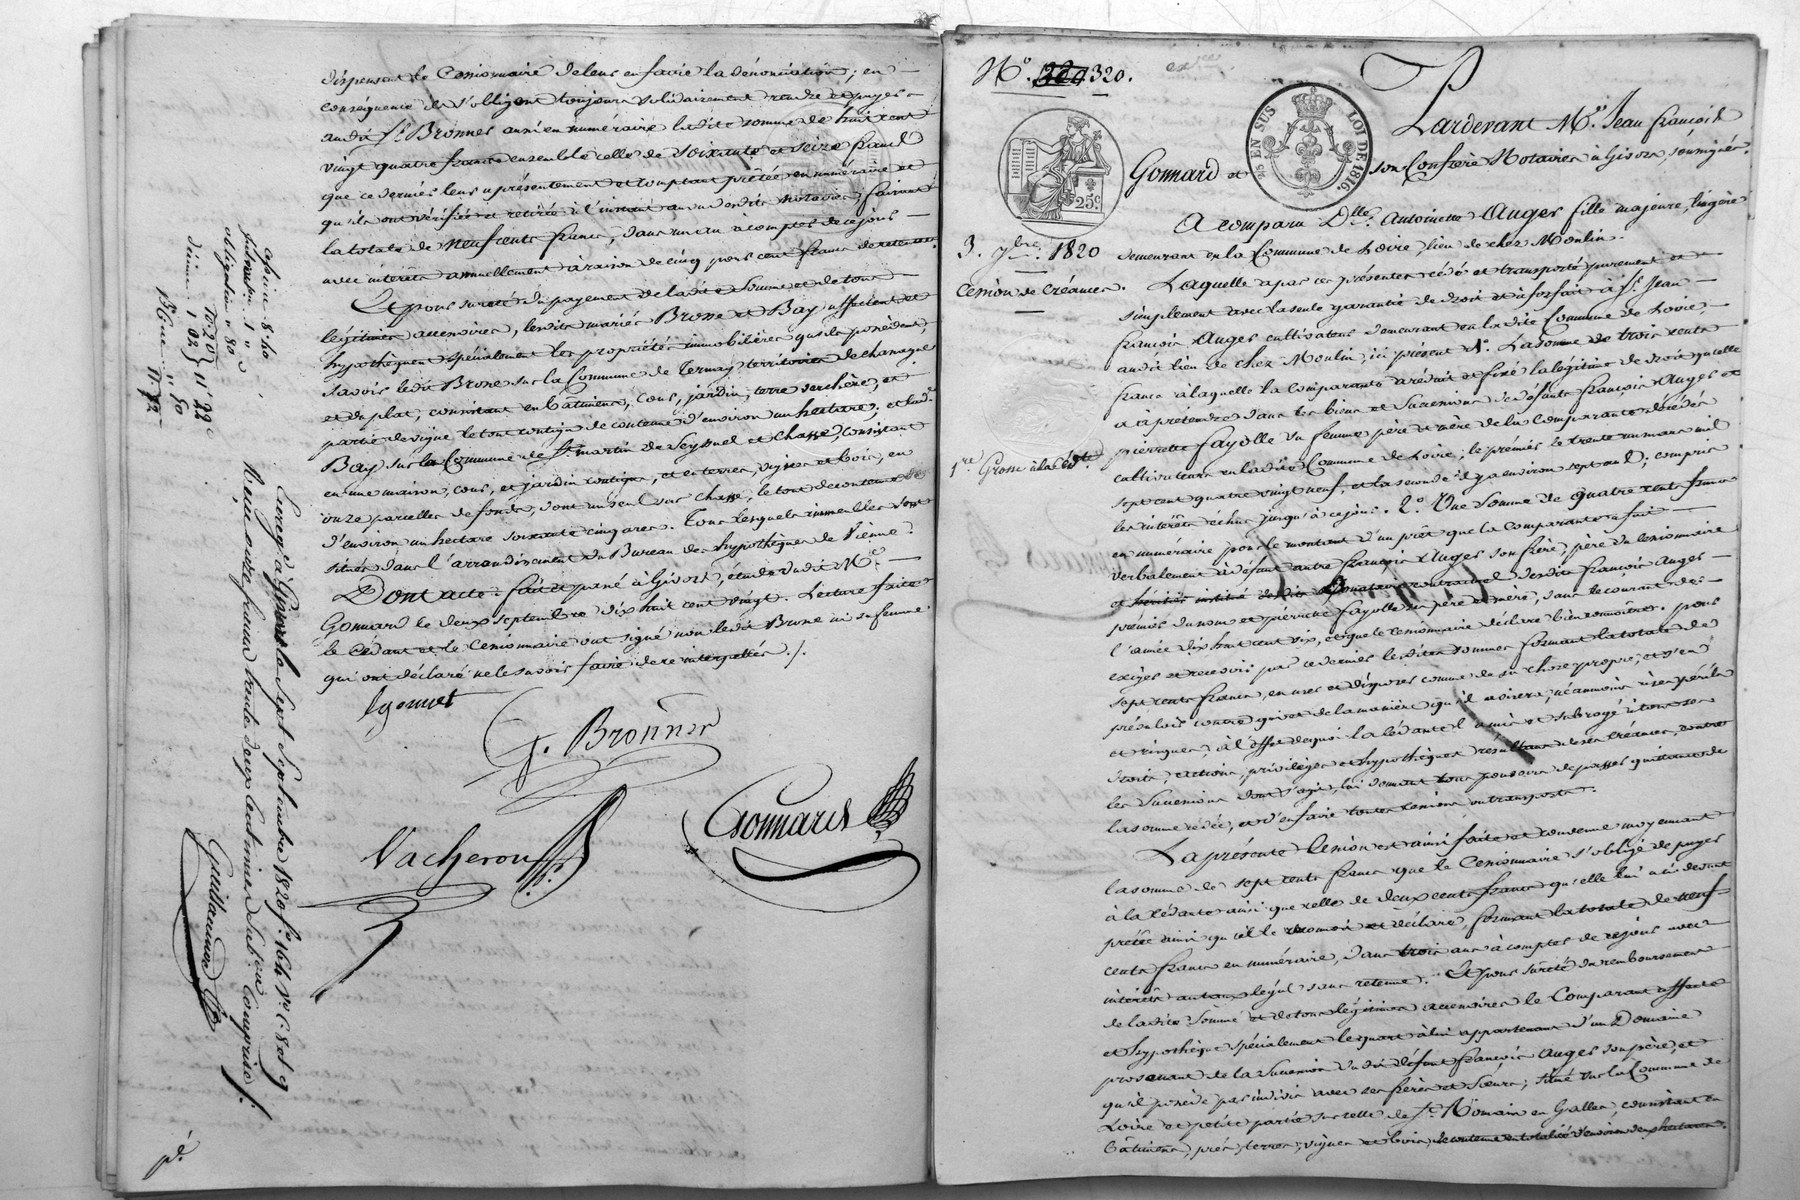 dispensant le Cessionnaire de leur en faire la dénonciation; en
conséquence ils s'obligent toujours solidairement rendre et payer
audit Sr. Bronner aussi en numéraire ladite somme de huit cent
vingt quatre francs ensemble celle de soixante et seize francs
que ce dernier leur a présentement et comptant prêtée en numéraire et
qu'ils ont vérifiée et retirée à l'instant au vu desdits notaires; faisant
la totale de neuf cents francs, dans un an à compter de ce jour
avec intérêts annuellement à raison de cinq pour cent francs de retenue.
Et pour sureté du payement de ladite somme et de tous
légitimes accessoires, lesdits mariés Brone et Bay affectent et
hypothèquent spécialement les propriétés immobilières qu'ils possèdent,
savoir ledit Brone sur la Commune de Ternay territoires de chamagnes
et du plat, consistant en bâtiments, cour, jardin, terre verchère, et
partie de vigne le tout contigu de contenue d'environ un hectare; et lade.
Bay sur la Commune de St martin de Seyssuel et Chasse, consistant
en une maison, cour, et jardin contigus, et en terres, vignes et bois, en
onze parcelles de fonds, dont un seul sur chasse, le tout de contenue
d'environ un hectare soixante cinq ares. Tous lesquels immeubles sont
situés dans l'arrondissement du Bureau des hypothèques de Vienne.
Dont acte: fait et passé à Givors, étude dudit Me.
Gonnard le deux septembre dix huit cent vingt. Lecture faite
le Cédant et le Cessionnaire ont signé non ledit Brone ni sa femme
qui ont déclaré ne le savoir faire de ce interpellés ./.
G. Bronner
Vacheron
Gonnard
Enreg. à Givors le Sept Septembre 1820 fo. 164 vo. C. 8 et 9
Reçu onze francs trente deux centimes Subon. Compris ./.
Guillaumon
No. 320.
25 EN SUS
LOI DE 1816.
25 c.
3. 7bre. 1820
Cession de Créances.
1re. Grosse à la Cédte.
Pardevant Me. Jean françois
Gonnard et son Confrère Notaires à Givors, soussignés.
A comparu Dlle. Antoinette Auger fille majeure, lingère
demeurant en la Commune de Loire, lieu de chez Moulin.
Laquelle a par ces présentes cédé et transporté purement et
simplement avec la seule garantie de droit et à forfait à Sr. Jean
françois Auger cultivateur demeurant en ladite Commune de Loire,
audit lieu de chez Moulin, ici présent 1o. La somme de trois cents
francs à laquelle la comparante a réduit et fixé la légitime de droit qu'elle
a à prétendre dans les biens et Successions de défunts françois Auger et
pierrette fayolle sa femme père et mère de la Comparante décédés
cultivateurs en ladite Commune de Loire; le premier le trente un mars mil
sept cent quatre vingt neuf, et la seconde il y a environ sept ans; compris
les intérêts échus jusqu'à ce jour. 2o. Une somme de quatre cents francs
en numéraire pour le montant d'un prêt que la comparante a fait
verbalement à défunt autre françois Auger son frère, père du cessionnaire
et donataire contractuel desdits françois Auger
premier du nom et pierrette fayolle ses père et mère, dans le courant de
l'année dix huit cent six, et que le cessionnaire déclare bien connaître. pour
exiger et recevoir par ce dernier lesdites sommes formant la totale de
sept cents francs, en user et disposer comme de sa chose propre; et s'en
prévaloir contre qui et de la manière qu'il avisera, néanmoins à ses périls
et risques, à l'effet de quoi la Cédante l'a mis et subrogé à tous ses
droits, actions, privilèges et hypothèques résultans de ses Créances, contre
les Successions dont s'agit, lui donnant tous pouvoirs de passer quittance de
la somme cédée, et d'en faire toutes cessions ou transports.
La présente Cession est ainsi faite et convenue moyennant
la somme de sept cents francs que le Cessionnaire s'oblige de payer
à la Cédante ainsi que celle de deux cents francs qu'elle lui a ci-devant
prêtée ainsi qu'il le reconnoit et déclare, formant la totale de neuf
cents francs en numéraire, dans trois ans à compter de ce jour avec
intérêts au taux légal sans retenue. Et pour sureté du remboursement
de ladite Somme et de tous légitimes accessoires le Comparant affecte
et hypothèque spécialement le quart à lui appartenant d'un Domaine
provenant de la Succession dudit défunt françois Auger son père, et
qu'il possède par indivis avec ses frères et Sœurs; situé sur la Commune de
Loire et petite partie sur celle de St. Romain en Gallier, consistant en
bâtimens, prés, terres, vignes et bois, de contenue en totalité d'environ deux hectares.